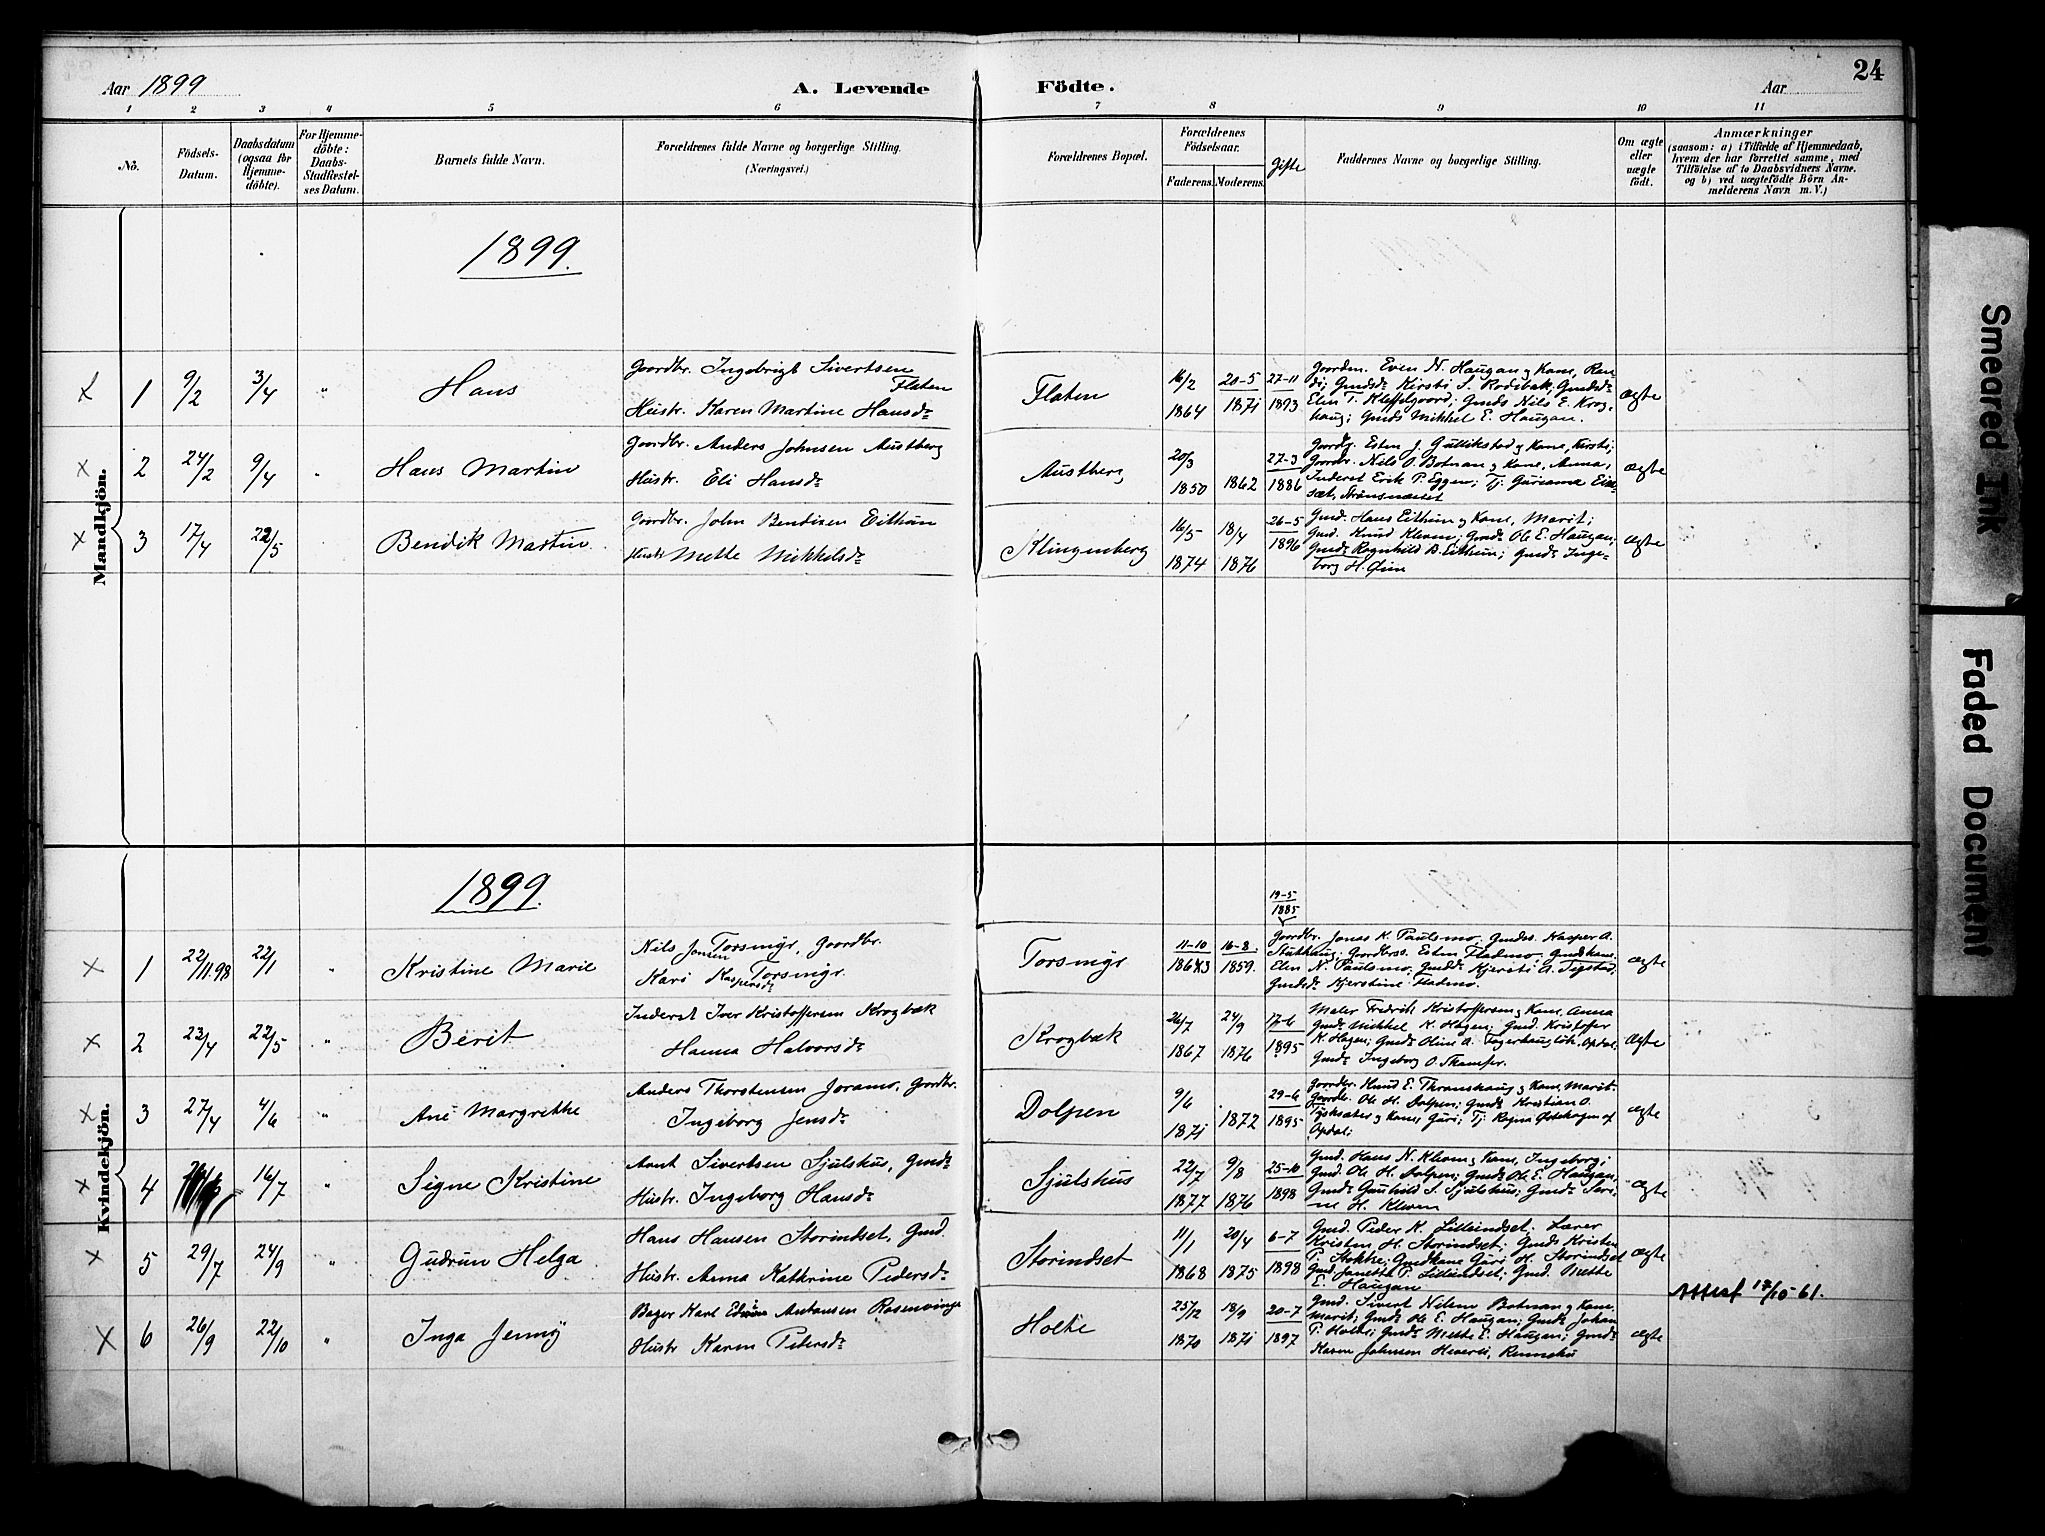 Aar 1899
A. Levende Födte.
Aar
24
1 2 3 4 5 6 7 8 9 10 11
No.
Födsels-Datum.
Daabsdatum (ogsaa for Hjemme-döbte).
For Hjemme-döbte: Daabs-Stadfæstel-ses Datum.
Barnets fulde Navn.
Forældrenes fulde Navne og borgerlige Stilling.
(Næringsvei.)
Forældrenes Bopæl.
Forældrenes Födselsaar.
Faderens. Moderens.
Gifte
Faddernes Navne og borgerlige Stilling.
Om ægte eller uægte født.
Anmærkninger
(saasom: a) i Tilfælde af Hjemmedaab,
hvem der har forrettet samme, med
Tilföielse af to Daabsvidners Navne.
og b) ved uægtefödte Börn An-
melderens Navn m. V.)
Mandkjön.
1899.
1 9/2 3/4 " Hans
Gaardbr. Ingebrigt Sivertsen
Flaten
Hustr. Karen Martine Hansdr
Flaten
16/2 1864
20-5 1871
27-11 1893
Gaardm. Even N. Haugan og Kone, Ran-
di; Gmdsdr Kirsti S. Rodibak, Gmdsdr
Elen T. Kleffelgaard; Gmds Nils E. Krog-
haug; Gmds Mikkel E. Haugan.
ægte
2 24/2 9/4 " Hans Martin
Gaardbr. Anders Johnsen Austberg
Hustr. Eli Hansdr
Austberg
20/3 1850
1862
27-3 1886
Gaardbr. Esten J. Gullikstad og Kone, Kirsti;
Gaardbr. Nils O. Botnan og Kone, Anna,
Inderst Erik P. Eggen; Tj. Gurianna
ægte
3 17/4 22/5 Bendik Martin
Gaardbr. John Bendixen Eithun
Hustr Mette Mikkelsdr
Klingenberg
16/5 1874
18/4 1876
26-5 1896
Gmd. Hans Eithun og Kone, Marit;
Gmd. Knud Kleven; Gmds Ole E. Haugan;
Gmdsdr Ragnhild B. Eithun; Gmdsdr Inge-
borg H.
ægte
Kvindekjön.
1899.
1 22/11.98 22/1 " Kristine Marie
Nils Jonsen Torsmyr, Gaardbr.
Kari Kaspersdr Torsmyr.
Torsmyr
11-10 1863
16-8 1859.
19-5 1885
Gaardbr. Jonas K. Paulsmo, Gmds. Kasper A.
Stutthaug; Gaardbrs. Esten Fladmo, Gmdskone
Elen N. Paulsmo, Gmdsdr Kjersti A. Tigstad,
Gmdsdr Kjerstine Fladmo.
ægte
2 23/4 22/5 " Berit
Inderst Iver Kristoffersen Krogbæk
Hanna Halvorsdr
Krogbæk
26/7 1867
24/9 1876
17-6 1895
Maler Fredrik Kristoffersen og Kone, Anna
Gmds Mikkel K. Hagen; Gmd. Kristoffer
K. Hagen; Gmdsdr Oline A. Opdal;
Gmdsdr Ingeborg O. Skamfer.
ægte
3 27/4 4/6 " Ane Margrethe
Anders Thorstensen Joramo, Gaardbr.
Ingeborg Jensdr
Dolpen
9/6 1871
1872
29-6 1895
Gaardbr. Knud E. Thranshaug og Kone, Marit.
Gaardbr. Ole H. Dolpen; Gmds Kristian O.
og Kone, Guri; Tj. Ragna af
Opdal;
ægte
4 16/7 " Signe Kristine
Arnt Sivertsen Sjulshus, Gmds
Hustr. Ingeborg Hansdr
Sjulshus
22/7 1877
9/8 1876
25-10 1898
Gmd. Hans N. Kleven og Kone, Ingeborg;
Gmd. Ole H. Dolpen; Gmds Ole E. Haugan,
Gmdsdr Gunhild S. Sjulshus; Gmdsdr Sere-
ne H. Kleven
ægte
5 29/7 24/9 " Gudrun Helga
Hans Hansen Storindset, Gmd.
Hustr. Anna Kathrine Pedersdr
Storindset
11/1 1868
20/4 1875
6-7 1898
Gmd. Peder K. Lilleindset. Lærer
Kristen H. Storindset; Gmds Kristen
P. Stokke; Gmdkone Guri H. Storindset
Gmd. Janetta P. Lilleindset; Gmd. Mette
E. Haugan
ægte
6 26/9 22/10 " Inga Jenny
Bager Karl Edvin Antonsen Rosenvinge
Hustr Karen Petersdr
Holte
25/12 1870
18/9 1871
20-7 1897
Gmd. Sivert Nilsen Botnan og Kone
Marit; Gmds Ole E. Haugan; Gmds Johan
P. Holte; Gmdsdr Mette E. Haugan; Gmdsdr
Karen Johnsen Rennebu
ægte
Attest 17/10-61.
Smeared Ink
Faded Document